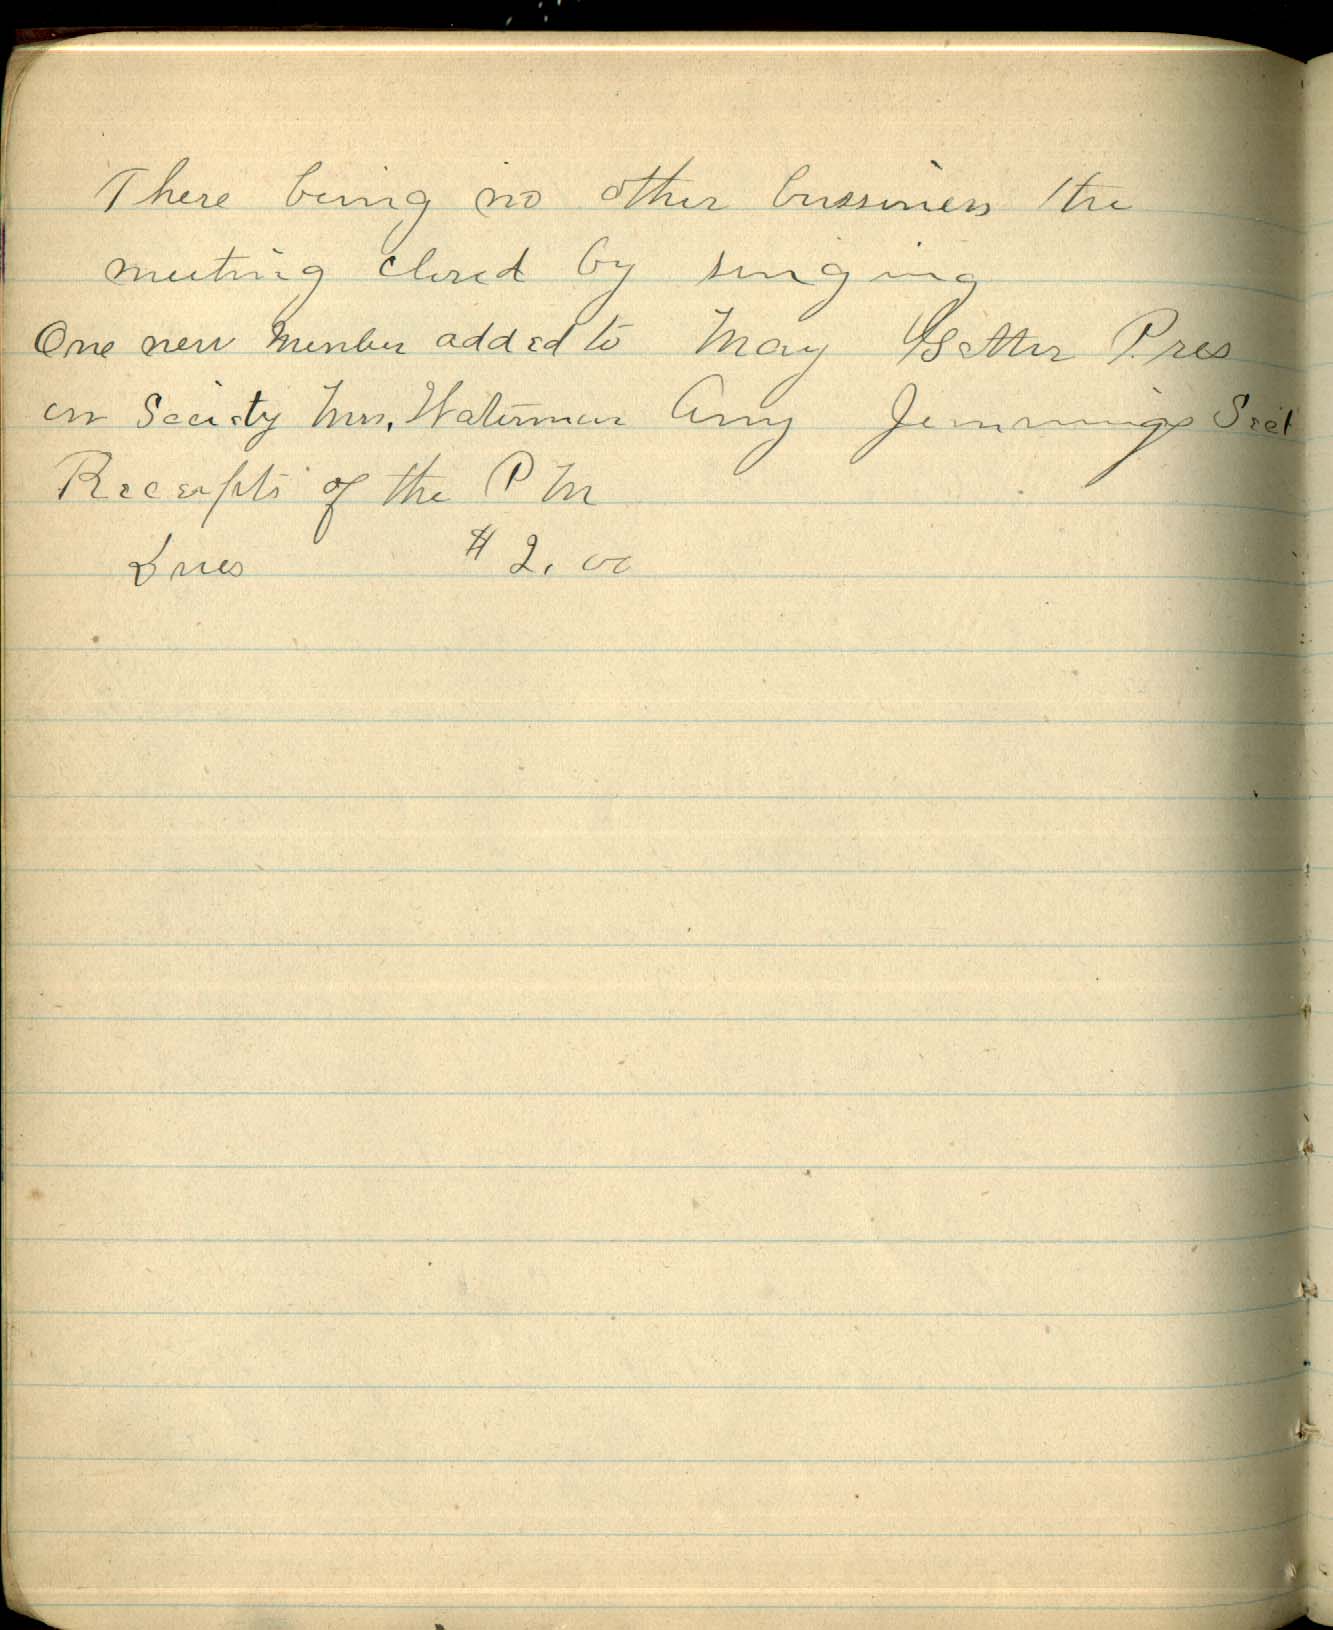 There being no other bussiness the
meeting closed by singing
One new Member added to May Pres
our Society Mrs. Waterman Amy Jennings Sect
Receipts of the P M
Dues $2.00